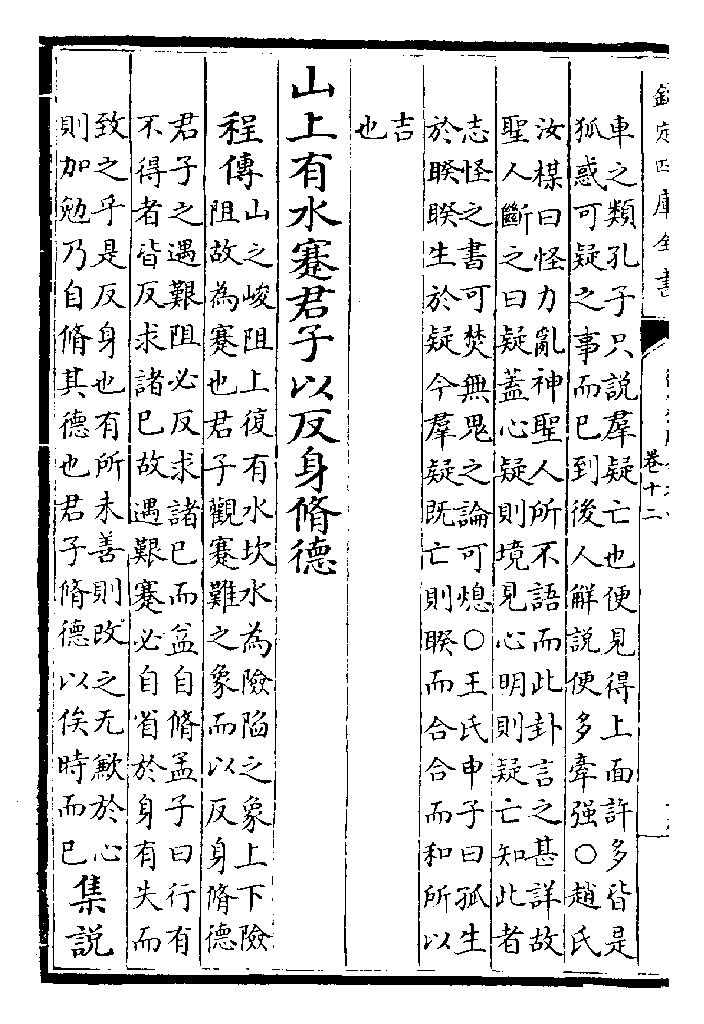 欽定四庫全書
卷十二
車之類孔子只説羣疑亡也便見得上面許多皆是
狐惑可疑之事而已到後人解説便多牽强○趙氏
汝楳曰怪力亂神聖人所不語而此卦言之甚詳故
聖人斷之曰疑蓋心疑則境見心明則疑亡知此者
志怪之書可焚無鬼之論可熄○王氏申子曰孤生
於睽睽生於疑今羣疑既亡則睽而合合而和所以
吉
也
山上有水蹇君子以反身脩德
程傳山之峻阻上復有水坎水為險陷之象上下險
阻故為蹇也君子觀蹇難之象而以反身脩德
君子之遇艱阻必反求諸已而益自脩孟子曰行有
不得者皆反求諸已故遇艱蹇必自省於身有失而
致之乎是反身也有所未善則改之无歉於心
則加勉乃自脩其德也君子脩德以俟時而已
集説